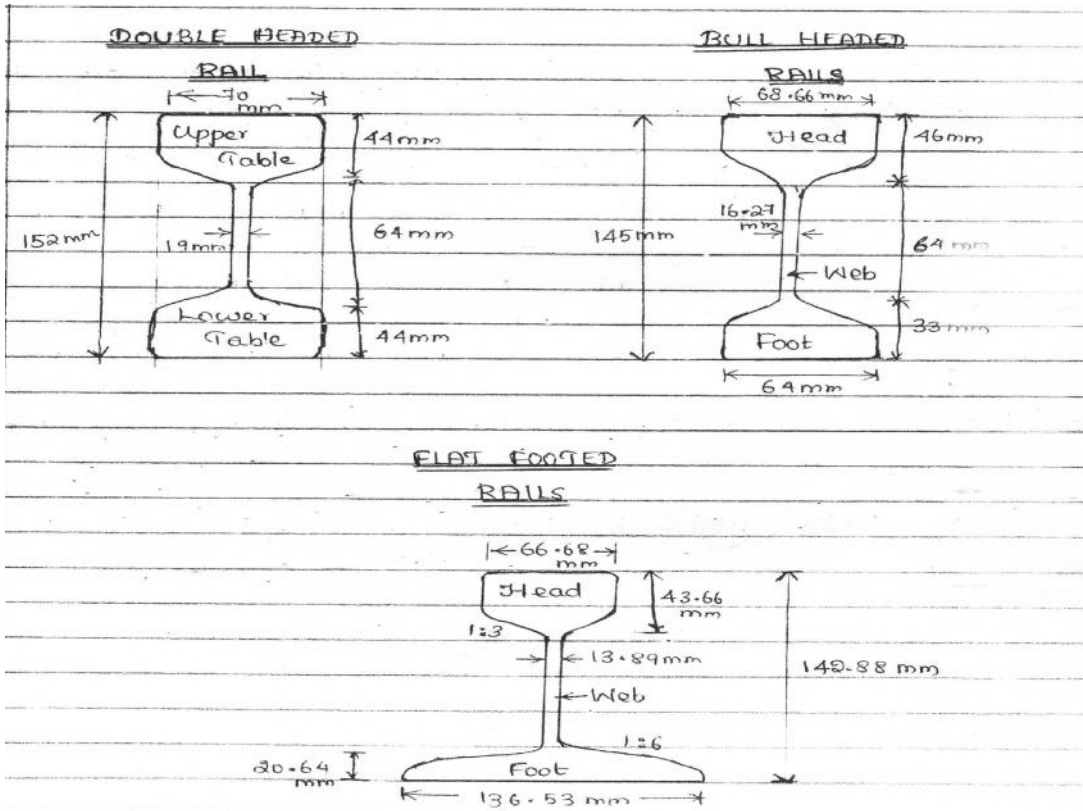 DOUBLE HEADED
RAIL
70
mm
Upper
Table
44mm
152mm
19mm
64mm
Lower
Table
44mm
BULL HEADED
RAILS
68.66mm
Head
46mm
16.27
mm
145mm
64mm
Web
33mm
Foot
64mm
FLAT FOOTED
RAILS
66.68
mm
Head
43.66
mm
1:3
13.89mm
Web
1:6
20.64
mm
Foot
136.53 mm